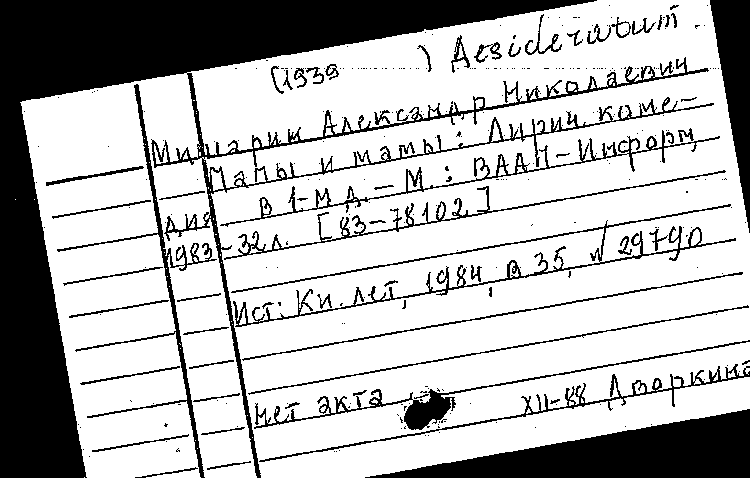 (1939 ) Desideratum.
Мишарин Александр Николаевич
Папы и мамы: Лирич. коме-
дия в 1-м д. – М.: ВААП-Информ,
1983 – 32 л. [83-78102]
Ист: Кн. лет, 1984, в 35, № 29790
нет акта
XII-88 Дворкина